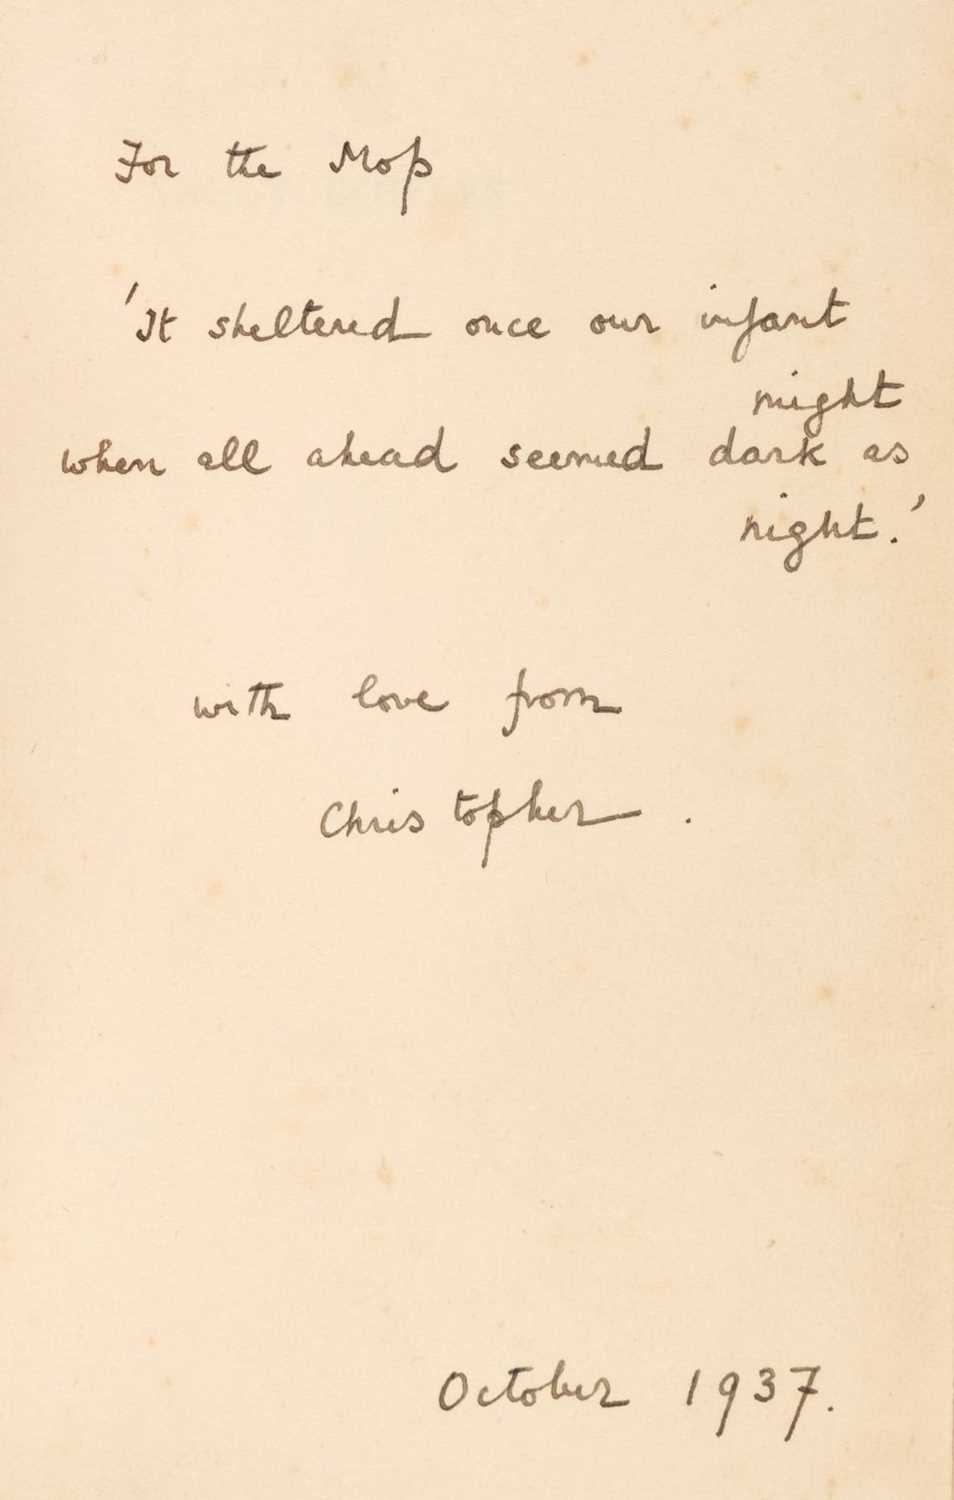 For the Mop
'It sheltered once our infant
might
when all ahead seemed dark as
night.'
with love from
Christopher.
October 1937.